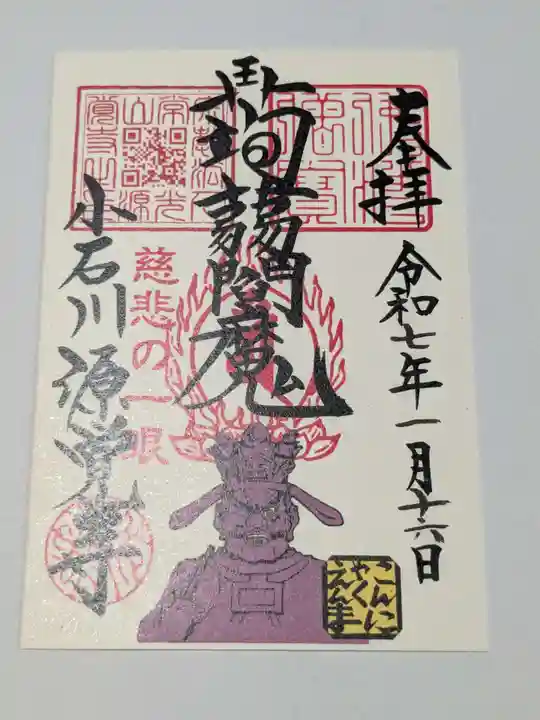 奉拝
令和七年一月十六日
蒟蒻閻魔
慈悲の一眼
小石川源覚寺
こんに
ゃく
えんま